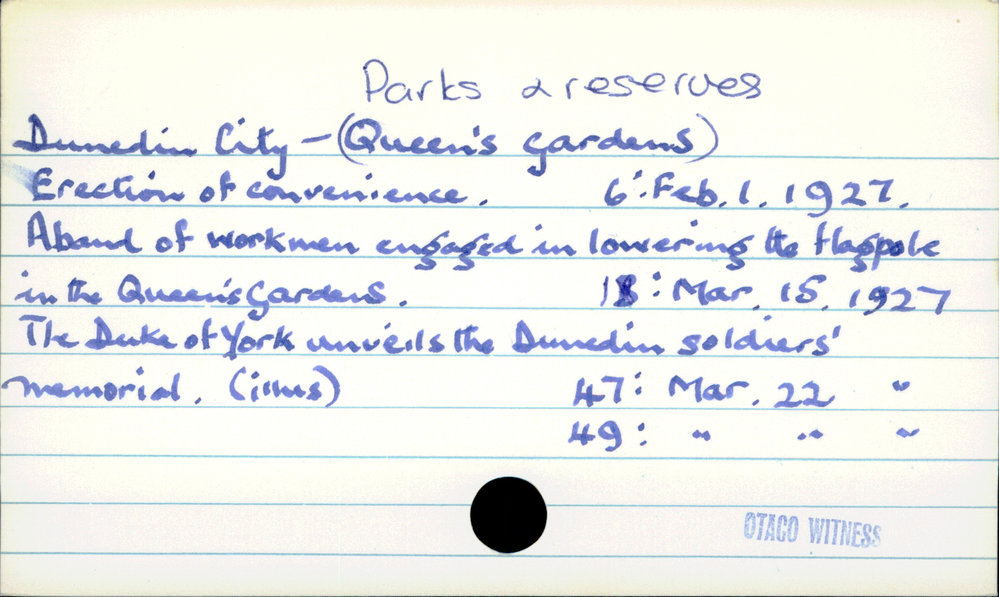 Parks & reserves
Dunedin City - (Queen's gardens)
Erection of convenience. 6: Feb. 1. 1927.
A band of workmen engaged in lowering the flagpole
in the Queen's Gardens. 18: Mar. 15. 1927
The Duke of York unveils the Dunedin soldiers'
memorial. (illus) 47: Mar. 22 "
49: " " "
OTAGO WITNESS